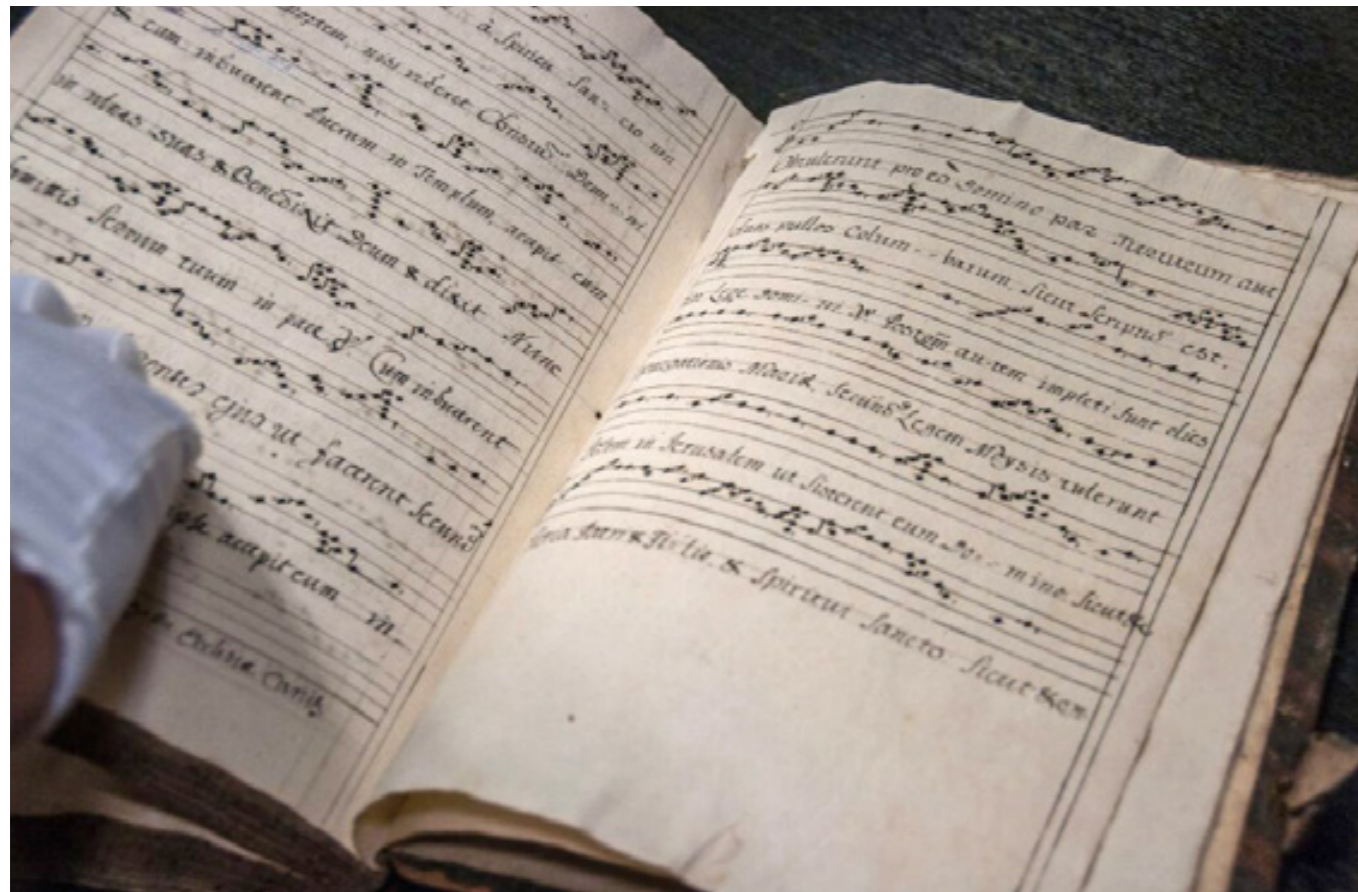 à Spiritu San- cto non
nisi videret Christũ Domi- ni
cum inducerent Puerum in Templum, accepit eum
in ulnas suas & Benedixit Deum & dixit Nunc
tuum in pace ℣ Cum inducerent
ejus ut facerent Secund
ipse accepit eum in
Omnis
Obtulerunt pro eo Domino par Turturum aut
duos pullos Colum- barum Sicut Scriptũ est
in Lege Domi- ni ℣ Postqm̃ au-tem impleti Sunt dies
Mariæ Secund Legem Moysis tulerunt
in Jerusalem ut Sisterent eum Do- mino Sicut
Patri & Filio & Spiritui Sancto Sicut